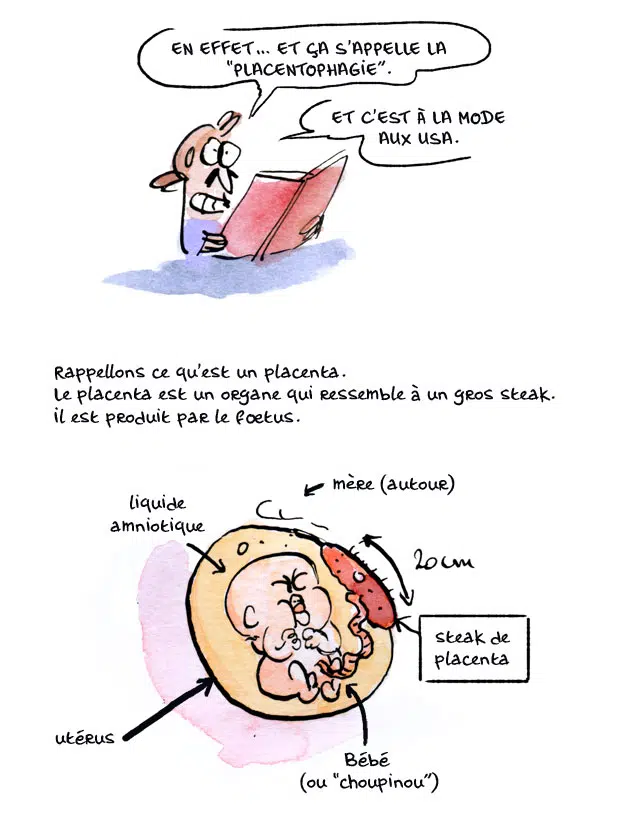 EN EFFET... ET ÇA S'APPELLE LA
"PLACENTOPHAGIE".
ET C'EST À LA MODE
AUX USA.
Rappellons ce qu'est un placenta.
Le placenta est un organe qui ressemble à un gros steak.
il est produit par le foetus.
mère (autour)
liquide
amniotique
20 cm
steak de
placenta
utérus
Bébé
(ou "choupinou")